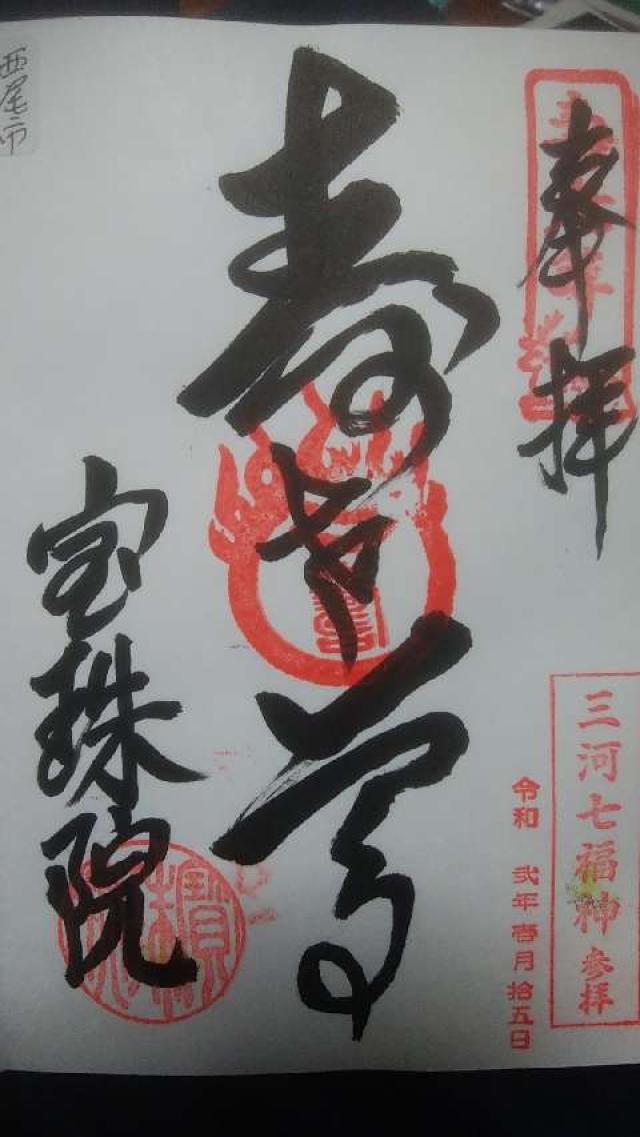 奉拝
三河七福神参拝
令和 弐年壱月拾五日
寿老尊
宝珠院
西尾市